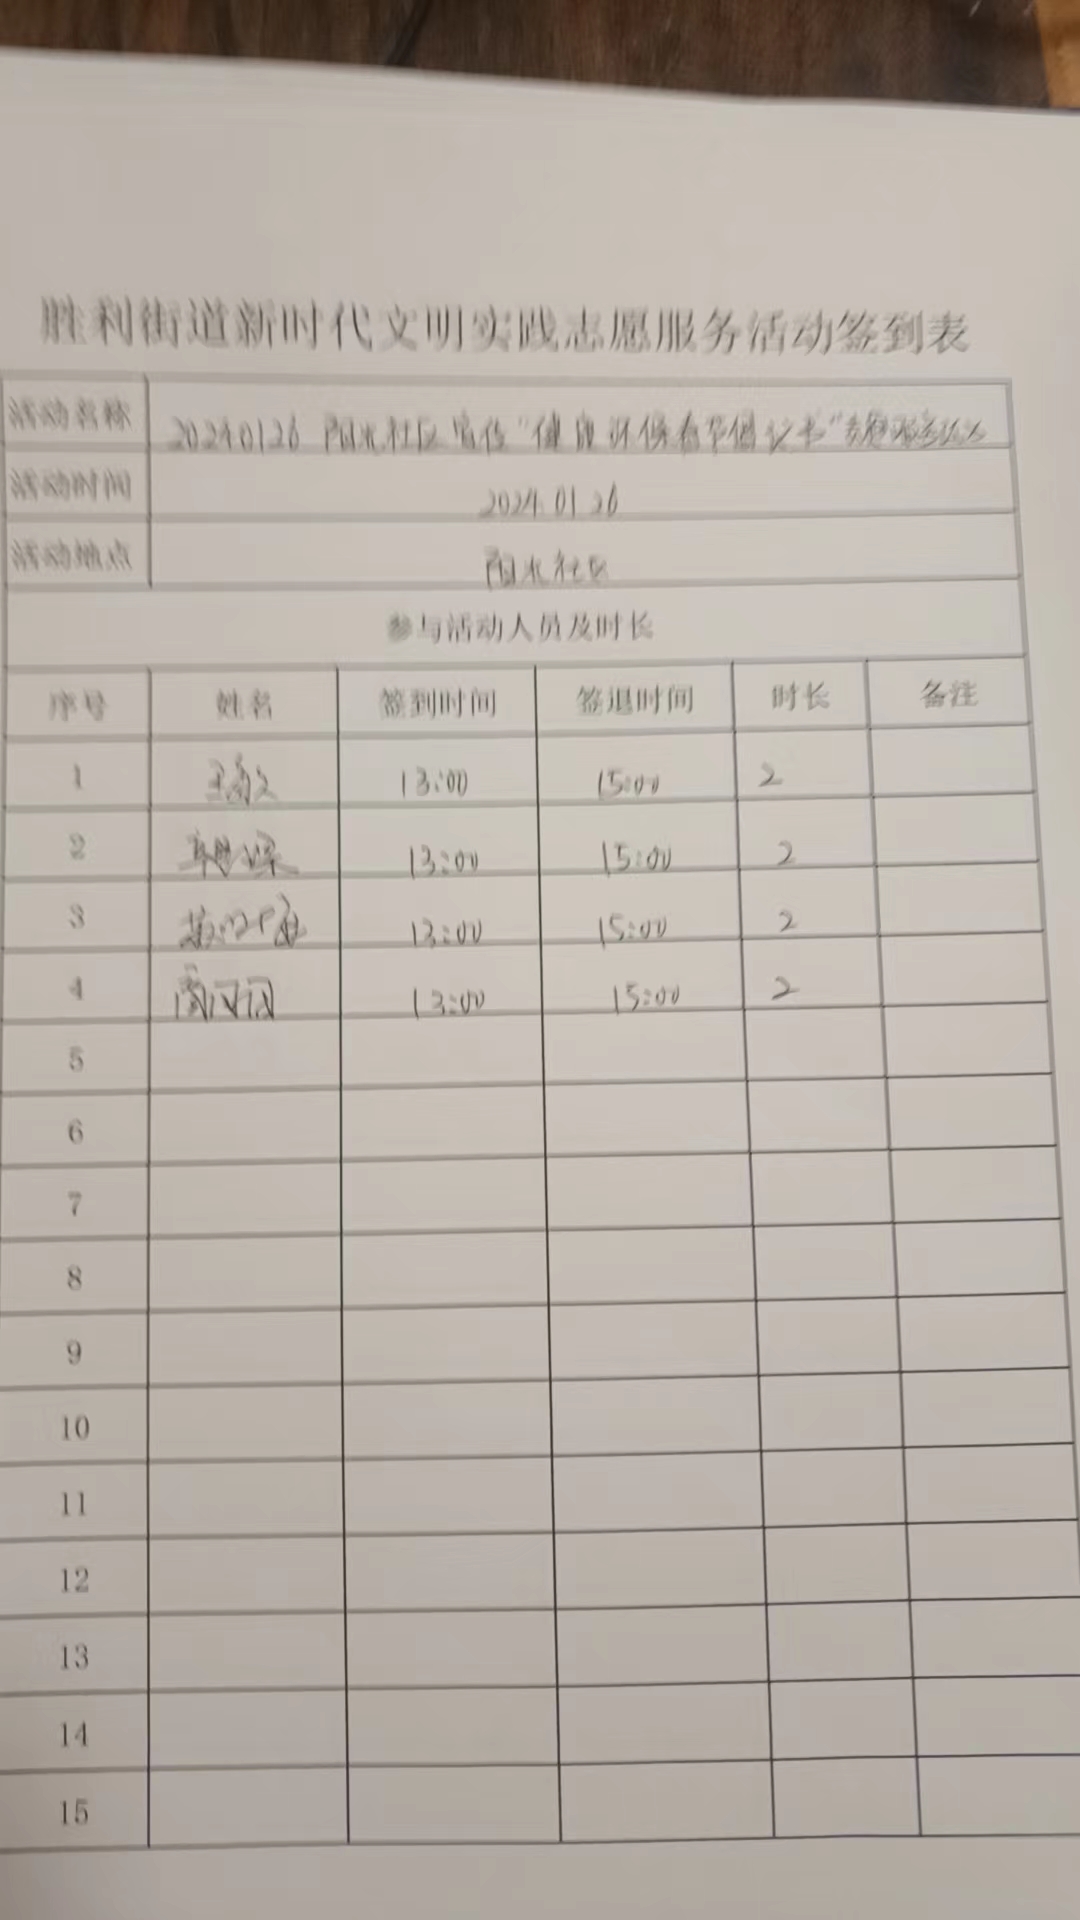 胜利街道新时代文明实践志愿服务活动签到表
活动名称 20240126 阳光社区宣传“健康环保春节倡议书”志愿服务
活动时间 2024.01.26
活动地点 阳光社区
参与活动人员及时长
序号 姓名 签到时间 签退时间 时长 备注
1 13:00 15:00 2
2 13:00 15:00 2
3 13:00 15:00 2
4 13:00 15:00 2
5
6
7
8
9
10
11
12
13
14
15